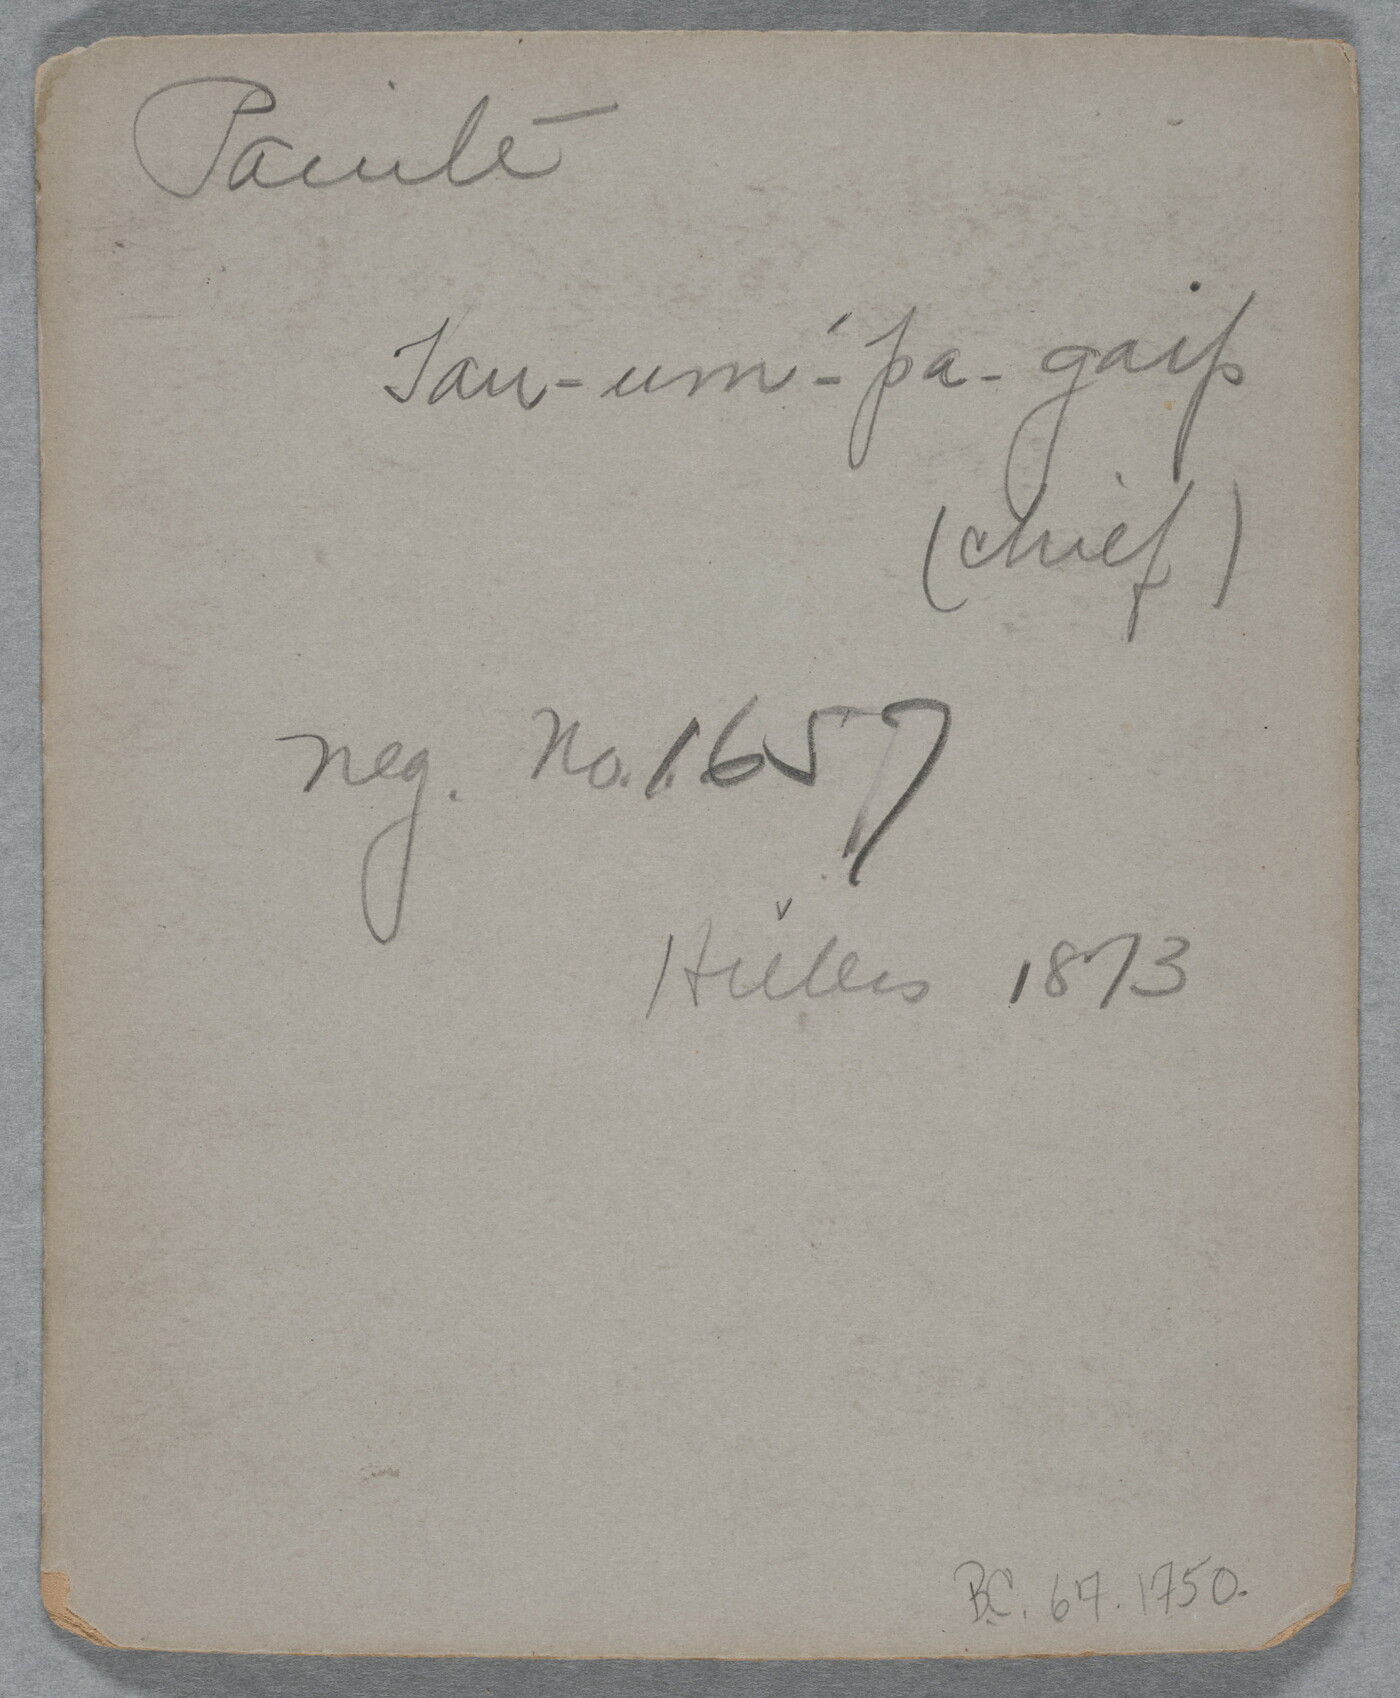 Paiute
Tau-um'-pa-gaip
(chief)
neg. No. 1657
Hillers 1873
B.C. 67.1750.